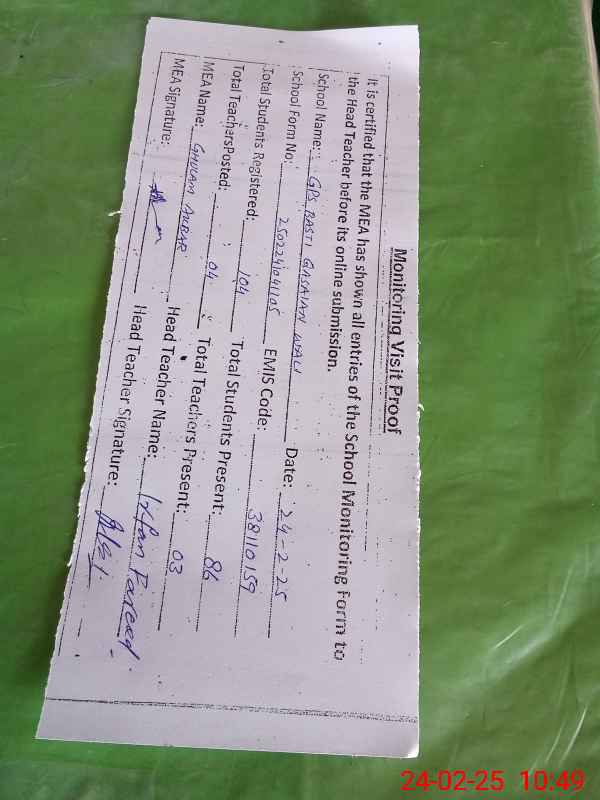 Monitoring Visit Proof
It is certified that the MEA has shown all entries of the School Monitoring Form to
the Head Teacher before its online submission.
School Name: GPS BASTI GASAIAN WALI Date: 24-2-25
School Form No: 2502241041105 EMIS Code: 38110159
Total Students Registered: 104 Total Students Present: 86
Total TeachersPosted: 04 Total Teachers Present: 03
MEA Name: GHULAM AKBAR Head Teacher Name: Irfan Fareed
MEA Signature: Head Teacher Signature:
24-02-25 10:49